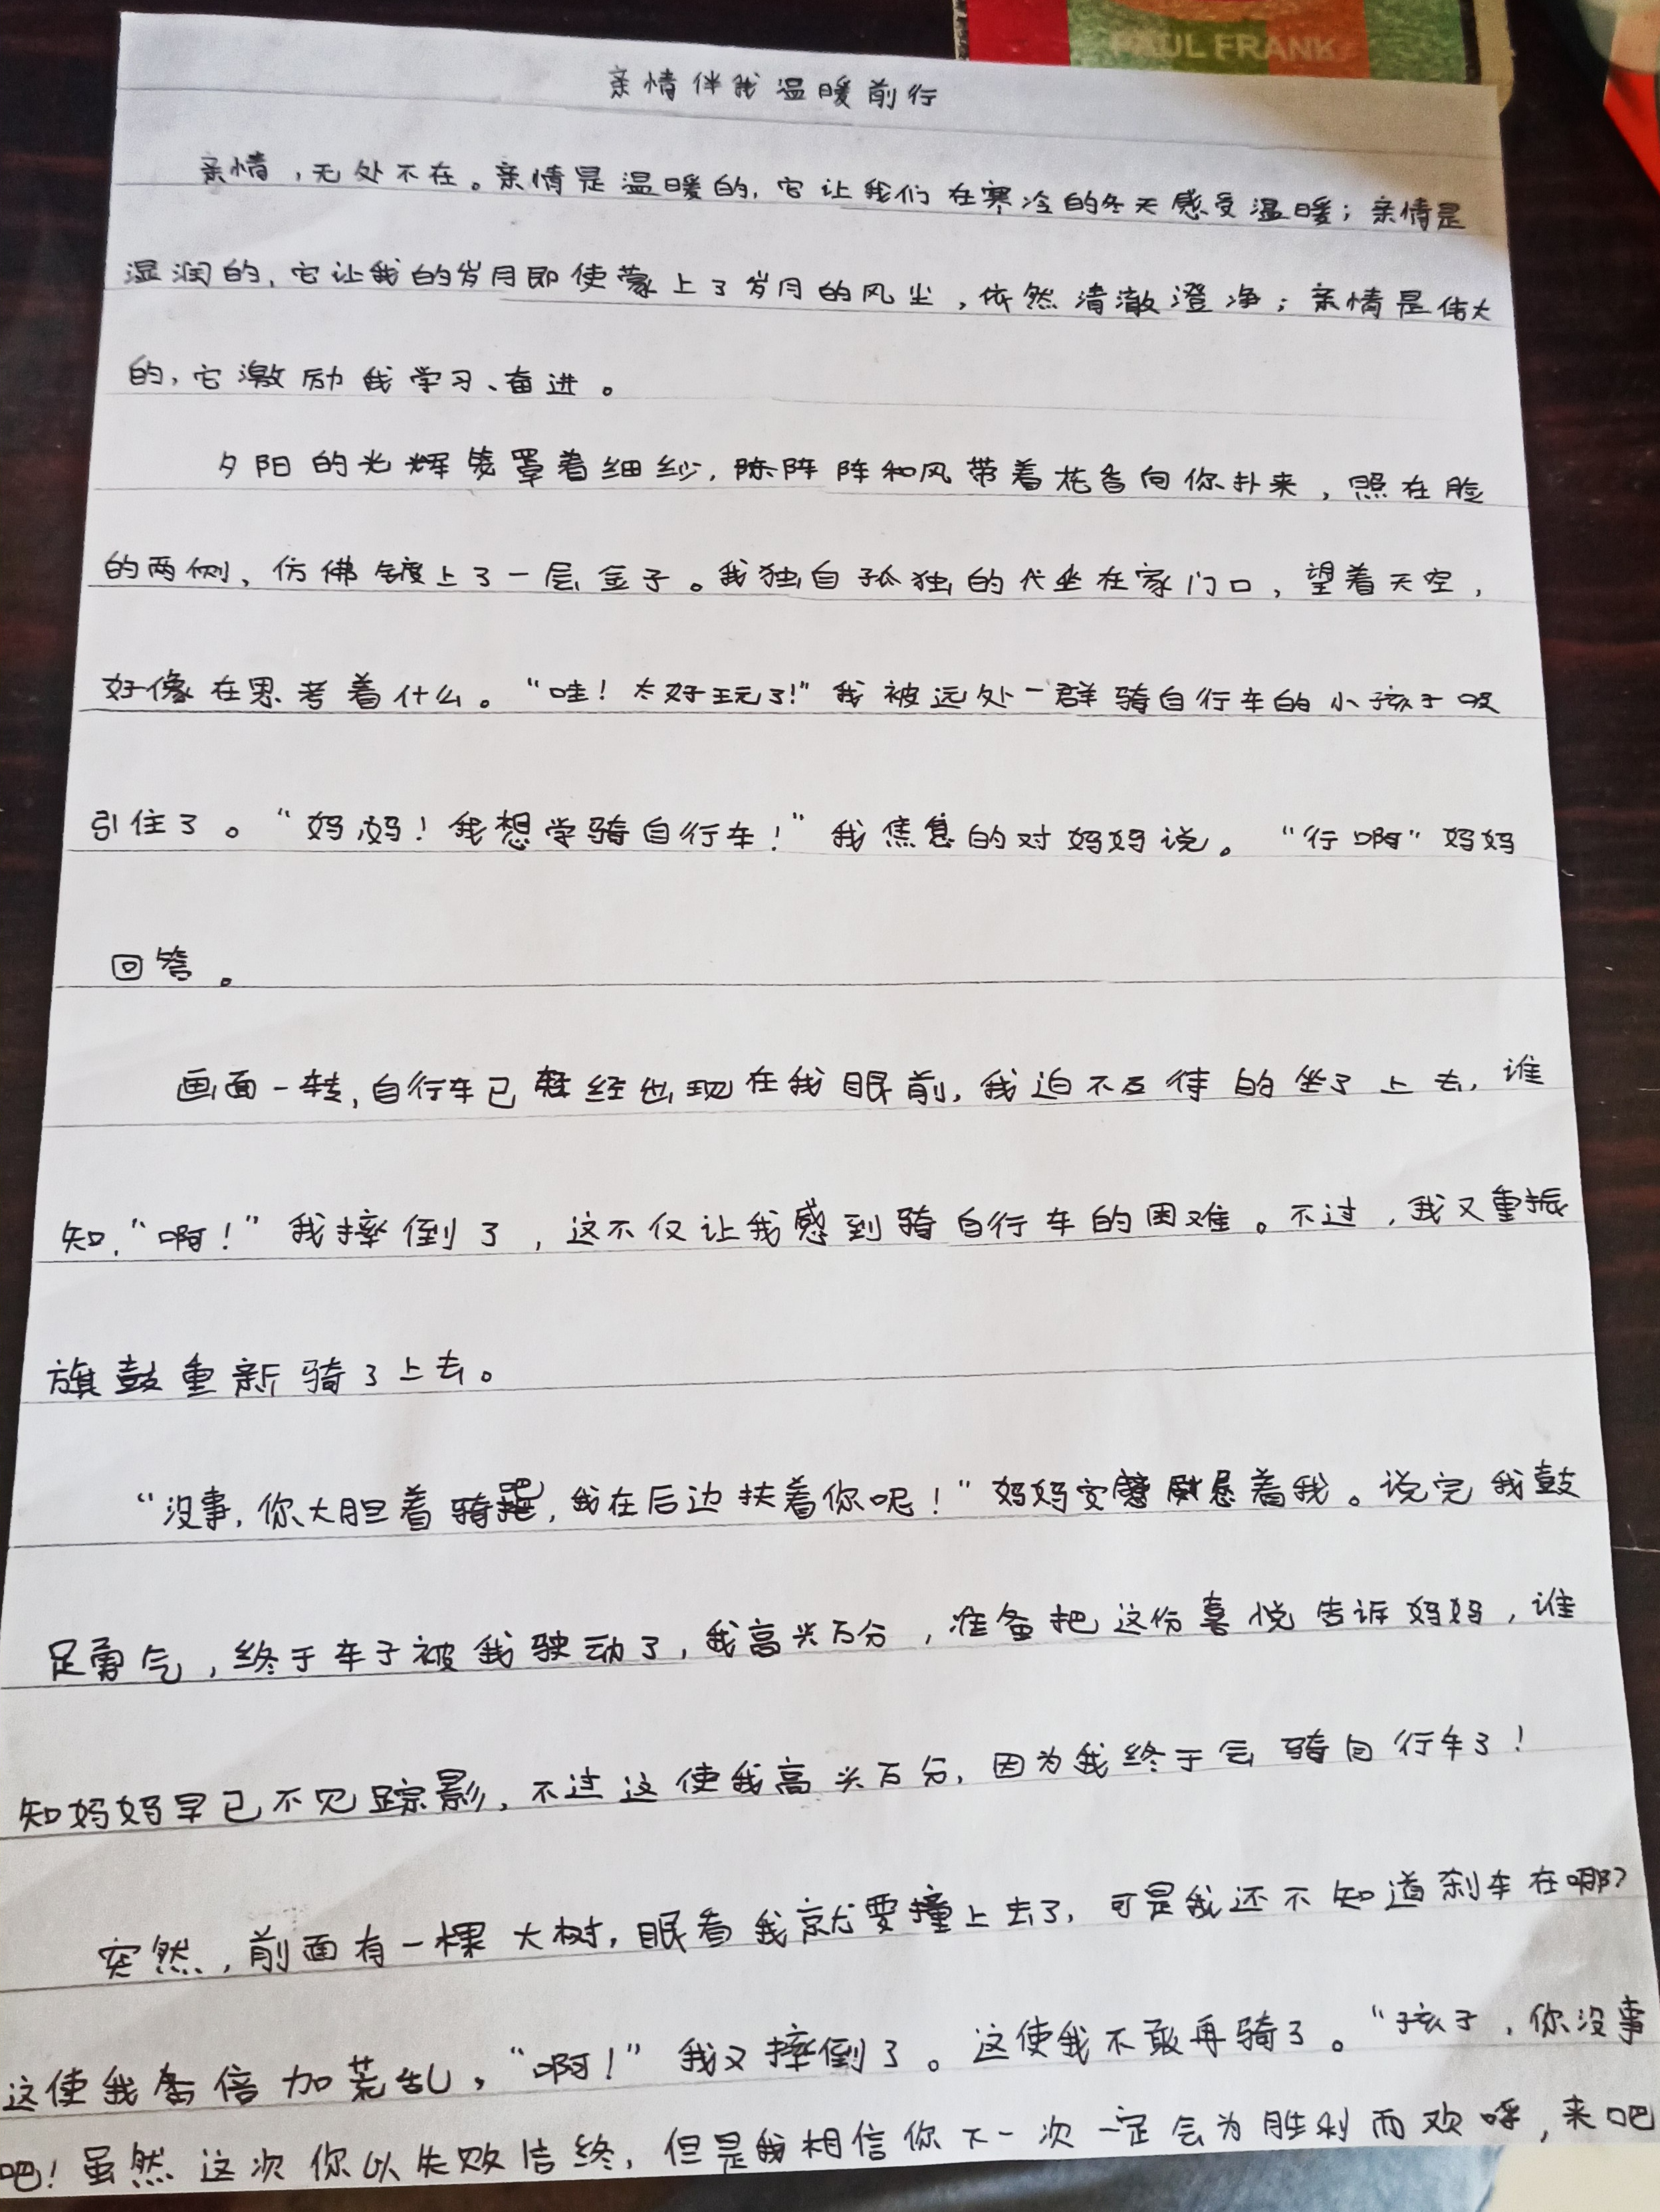 PAUL FRANK
亲情伴我温暖前行
亲情,无处不在。亲情是温暖的,它让我们在寒冷的冬天感受温暖;亲情是
湿润的,它让我的岁月即使蒙上了岁月的风尘,依然清澈澄净;亲情是伟大
的,它激励我学习、奋进。
夕阳的光辉笼罩着细纱,阵阵和风带着花香向你扑来,照在脸
的两侧,仿佛镀上了一层金子。我独自孤独的坐在家门口,望着天空,
好像在思考着什么。“哇!太好玩了!”我被远处一群骑自行车的小孩子吸
引住了。“妈妈!我想学骑自行车!”我焦急的对妈妈说。“行啊”妈妈
回答。
画面一转,自行车已经出现在我眼前,我迫不及待的坐了上去,谁
知,“啊!”我摔倒了,这不仅让我感到骑自行车的困难。不过,我又重振
旗鼓重新骑了上去。
“没事,你大胆着骑吧,我在后边扶着你呢!”妈妈安慰着我。说完我鼓
足勇气,终于车子被我驶动了,我高兴万分,准备把这份喜悦告诉妈妈,谁
知妈妈早已不见踪影,不过这使我高兴万分,因为我终于会骑自行车了!
突然,前面有一棵大树,眼看我就要撞上去了,可是我还不知道刹车在哪?
这使我倍加荒乱,“啊!”我又摔倒了。这使我不敢再骑了。“孩子,你没事
吧!虽然这次你以失败告终,但是我相信你下一次一定会为胜利而欢呼,来吧